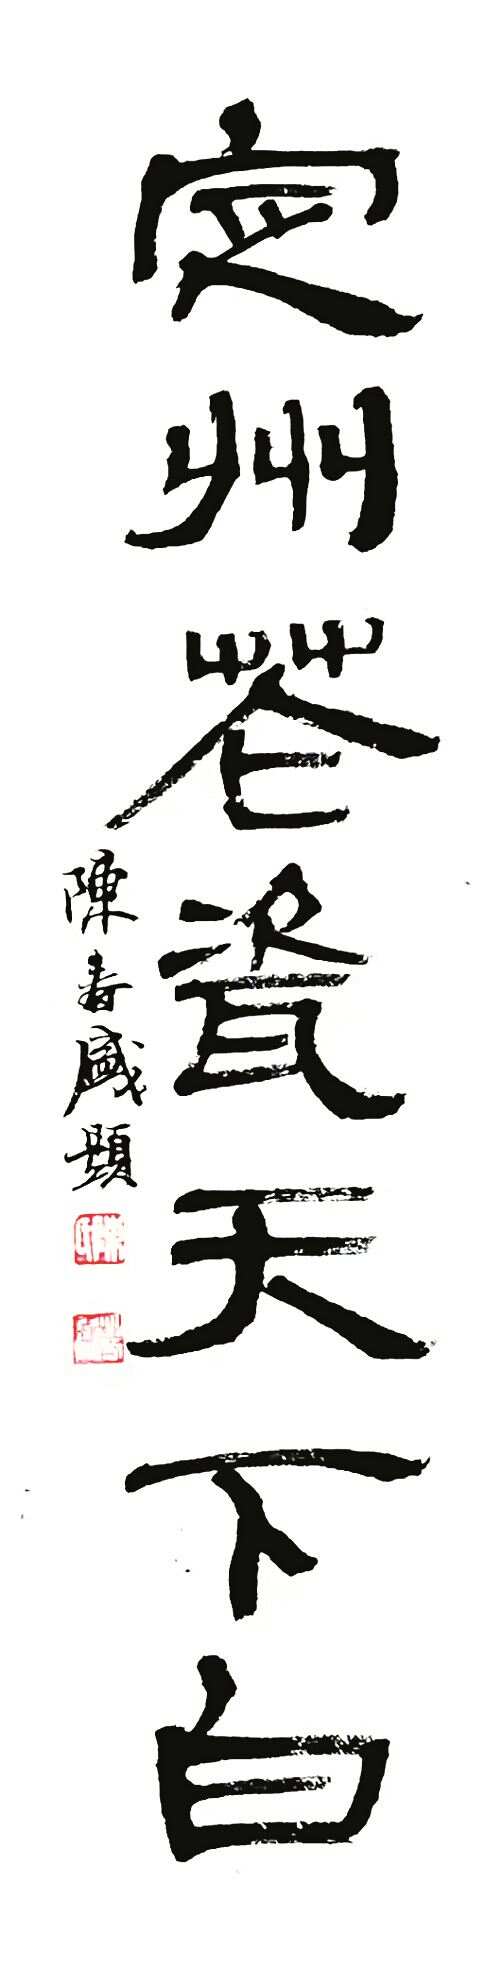 定州花瓷天下白
陳春盛題